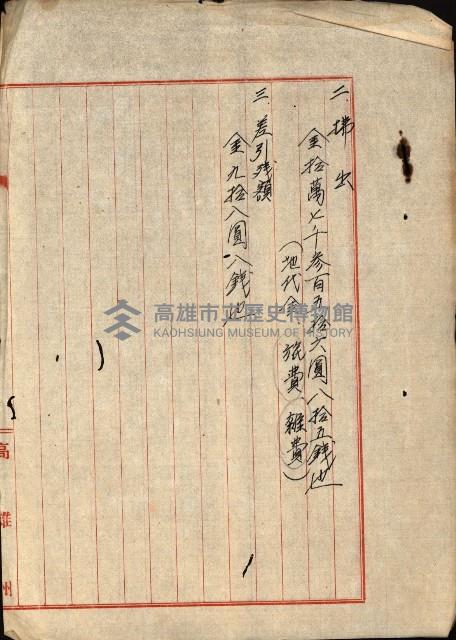 二、拂出
金拾萬七千參百五拾六圓八拾五錢也
(地代金、旅費、雜費)
三、差引残額
金九拾八圓八錢也
高雄州
高雄市立歷史博物館
KAOHSIUNG MUSEUM OF HISTORY